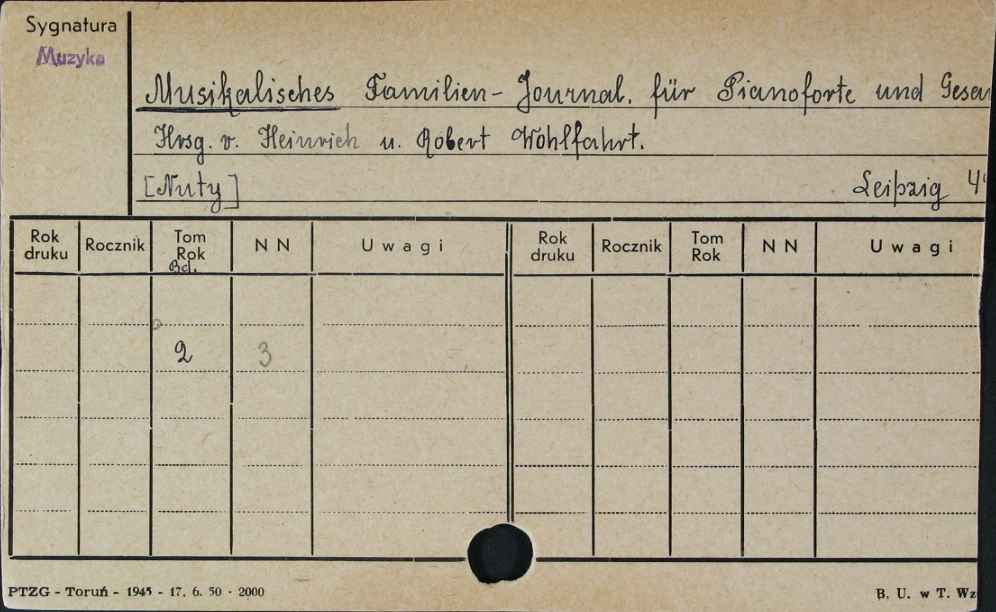 Sygnatura
Muzyka
Musikalisches Familien-Journal. für Pianoforte und Gesan
Hrsg. v. Heinrich u. Robert Wohlfahrt.
[Nuty] Leipzig
Rok druku Rocznik Tom Rok NN Uwagi Rok druku Rocznik Tom Rok NN Uwagi
Bd.
2 3
PTZG - Toruń - 1945 - 17. 6. 50 - 2000 B. U. w T. Wz